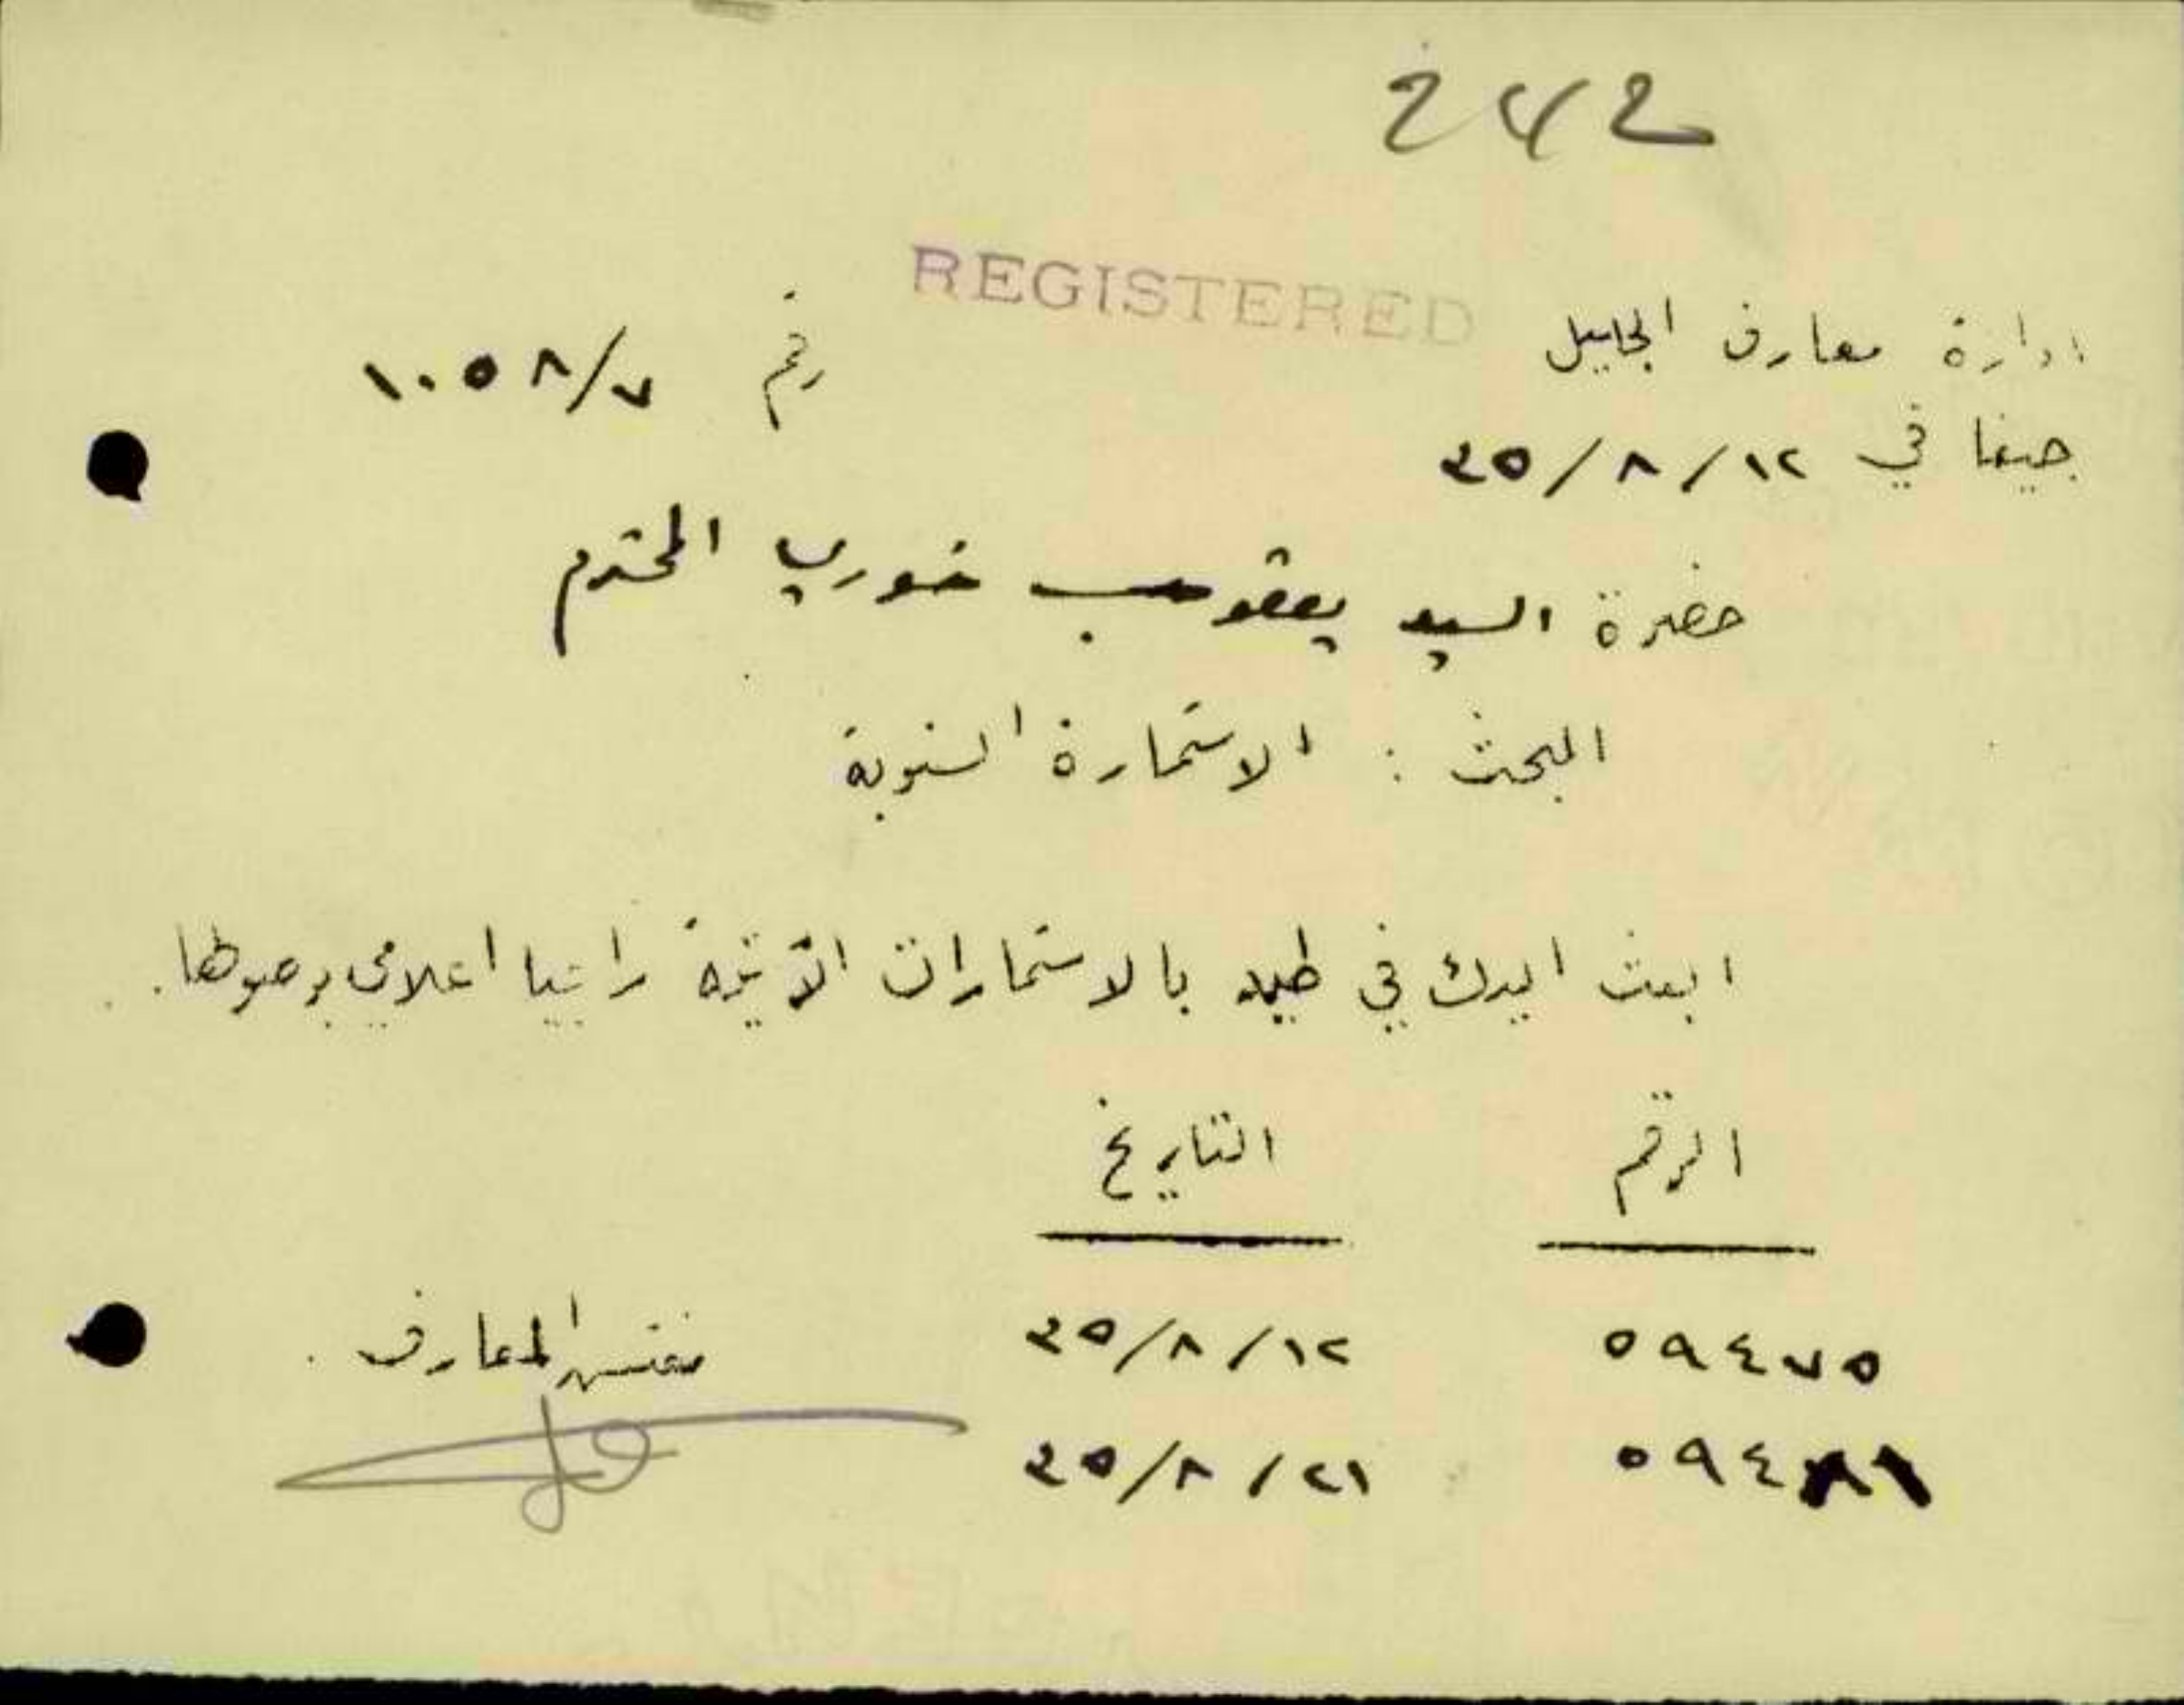 242
REGISTERED
ادارة معارف الجليل
رقم ١٠٥٨/٧
حيفا في ٣٥/٨/١٢
حضرة السيد يعقوب خوري المحترم
المبحث : الاستمارة السنوية
ابعث اليك في طيه بالاستمارات الآتية راجيا اعلامي بوصولها.
الرقم التاريخ
٥٩٤٧٥ ٣٥/٨/١٢
مفتش المعارف.
٥٩٤٨١ ٣٥/٨/٢١